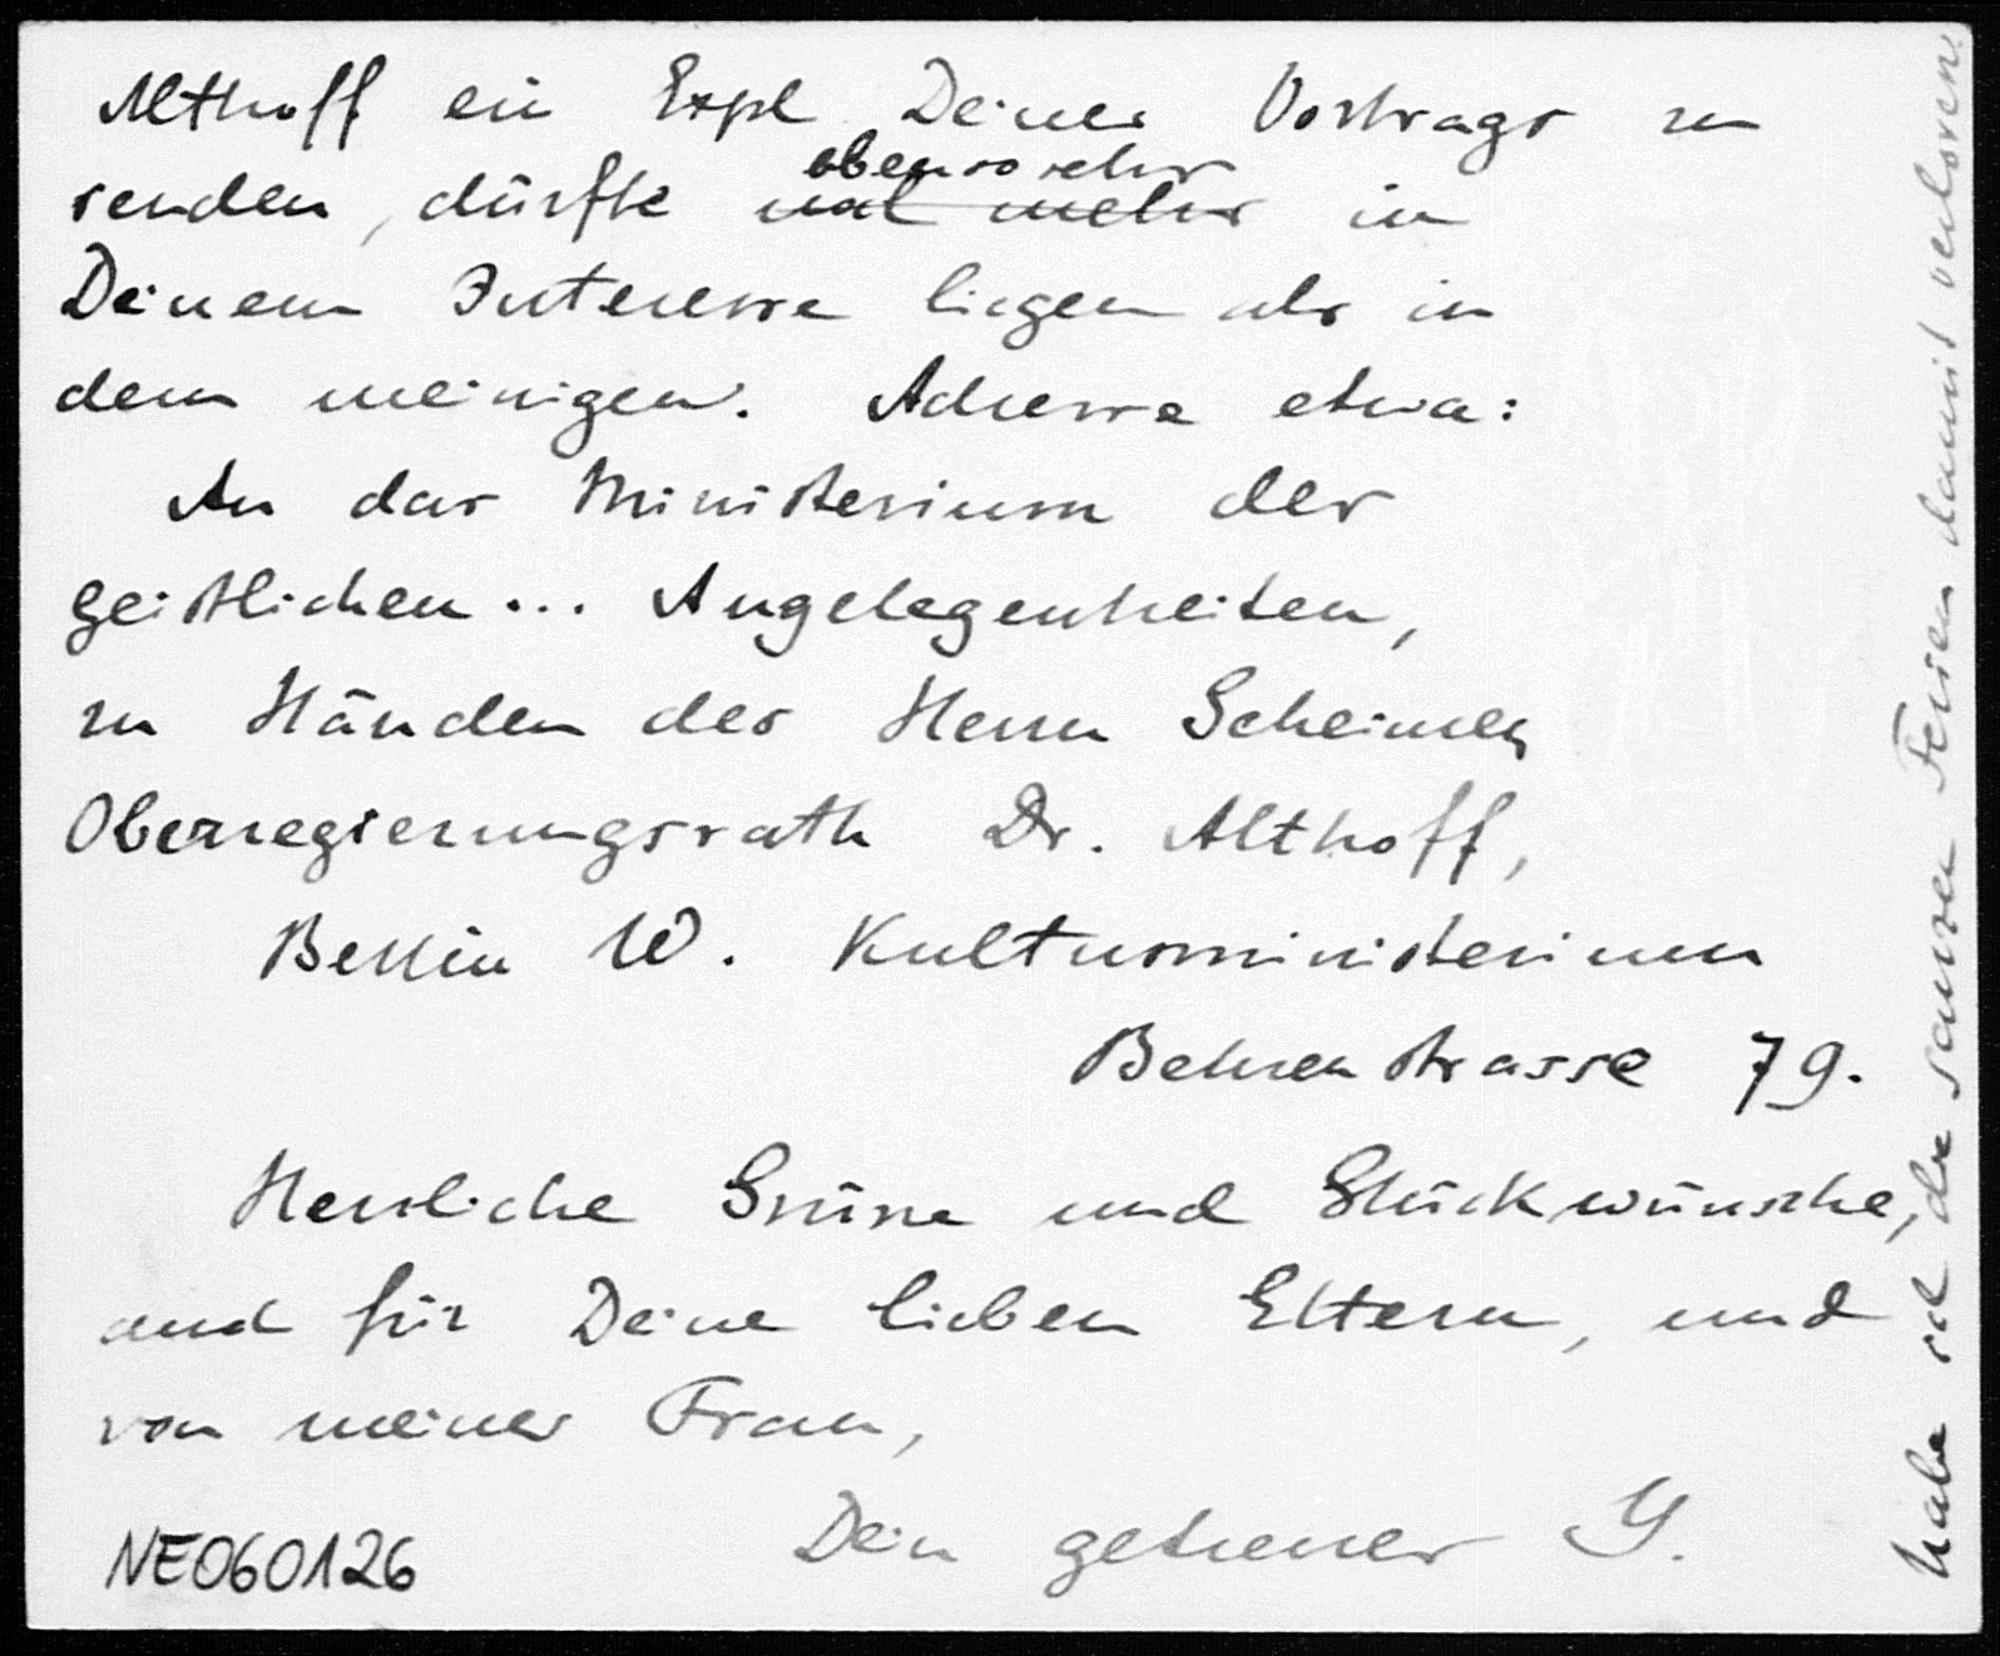 Althoff ein Expl Deines Vortrags zu
senden, dürfte ebenso sehr
~~noch mehr~~ in
Deinem Interesse liegen als in
dem meinigen. Adresse etwa:
An das Ministerium der
geistlichen ... Angelegenheiten,
zu Händen des Herrn Geheimen
Oberregierungsrath Dr. Althoff,
Berlin W. Kultusministerium
Behrenstrasse 79.
Herzliche Grüsse und Glückwünsche,
auch für Deine lieben Eltern, und
von meiner Frau,
Dein getreuer
NE060126
habe ich die ganzen Ferien damit verloren.